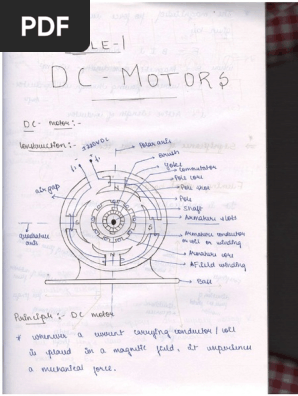 PDF
LE-1
DC-MOTORS
DC- motor:-
Construction:-
220V DC
+
-
Polar axis
Brush
Yoke
Commutator
Pole core
Pole shoe
Pole
Shaft
Armature slots
Armature conductor
or coil or winding
Armature core
Field winding
Base
air gap
quadrature
axis
N
S
Principle :- DC motor
* whenever a current carrying conductor/coil
is placed in a magnetic field, it experiences
a mechanical force.